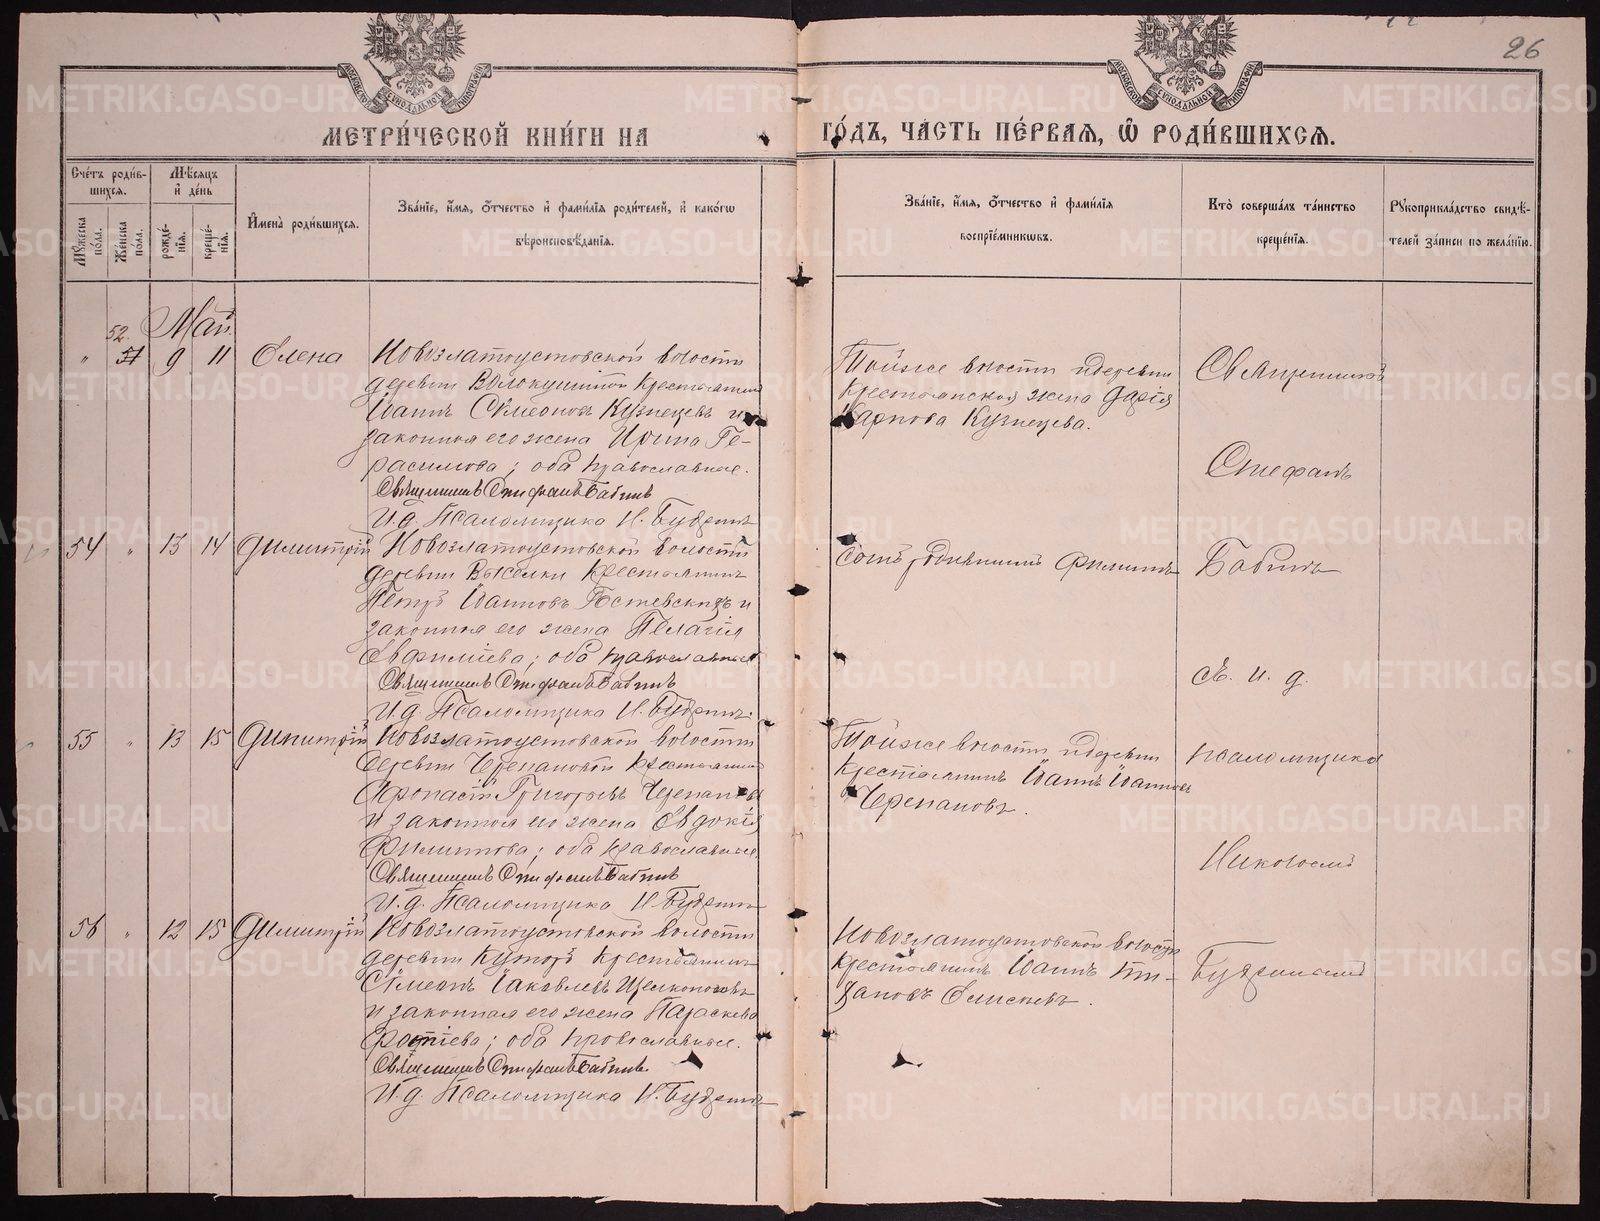 26
МЕТРИ́ЧЕСКОЙ КНИ́ГИ НА ГО́ДЪ, ЧА́СТЬ ПЕ́РВАЯ, Ѿ РОДИ́ВШИХСЯ.
Сче́тъ роди́в-
шихся.
Мѣ́сяцъ
и҆ де́нь
Му́жеска по́ла.
Же́нска по́ла.
рожде́-
нїѧ.
креще́-
нїѧ.
И҆мена̀ роди́вшихсѧ.
Зва́нїе, и҆́мѧ, ѻ҆́тчество и҆ фами́лїѧ роди́телей, и҆ како́гѡ
вѣроисповѣ́данїѧ.
Зва́нїе, и҆́мѧ, ѻ҆́тчество и҆ фами́лїѧ
воспрїе́мникѡвъ.
Кто̀ соверша́лъ та́инство
креще́нїѧ.
Рукоприкла́дство свидѣ́-
телей за́писи по жела́нїю.
Май
52.
" 51 9 11 Елена
Новозлатоустовской волости
деревни Волокушиной крестьянинъ
Іоаннъ Симеоновъ Кузнецовъ и
законная его жена Ирина Ге-
расимова; оба православные.
Священникъ Стефанъ Бабинъ
И. д. Псаломщика Н. Будринъ
Тойже волости и деревни
крестьянская жена Дарія
Карпова Кузнецова.
Священникъ
Стефанъ
54 " 13 14 Димитрій
Новозлатоустовской волости
деревни Выселки крестьянинъ
Петръ Іоанновъ и
законная его жена Пелагія
Евфиміева; оба православные
Священникъ Стефанъ Бабинъ
И. д. Псаломщика Н. Будринъ
Сынъ Филиппъ
Бабинъ
съ и. д.
55 " 13 15 Димитрій
Новозлатоустовской волости
деревни Черепановой крестьянинъ
Григорьевъ Черепановъ
и законная его жена Евдокія
Филиппова; оба православные.
Священникъ Стефанъ Бабинъ
И. д. Псаломщика Н. Будринъ
Тойже волости и деревни
крестьянинъ Іоаннъ Іоанновъ
Черепановъ.
псаломщика
Николаемъ
56 " 12 15 Димитрій
Новозлатоустовской волости
деревни крестьянинъ
Симеонъ Іаковлевъ Щелконоговъ
и законная его жена Параскева
Фотіева; оба православные.
Священникъ Стефанъ Бабинъ.
И. д. Псаломщика Н. Будринъ
Новозлатоустовской волости
крестьянинъ Іоаннъ
Елисеевъ.
METRIKI.GASO-URAL.RU